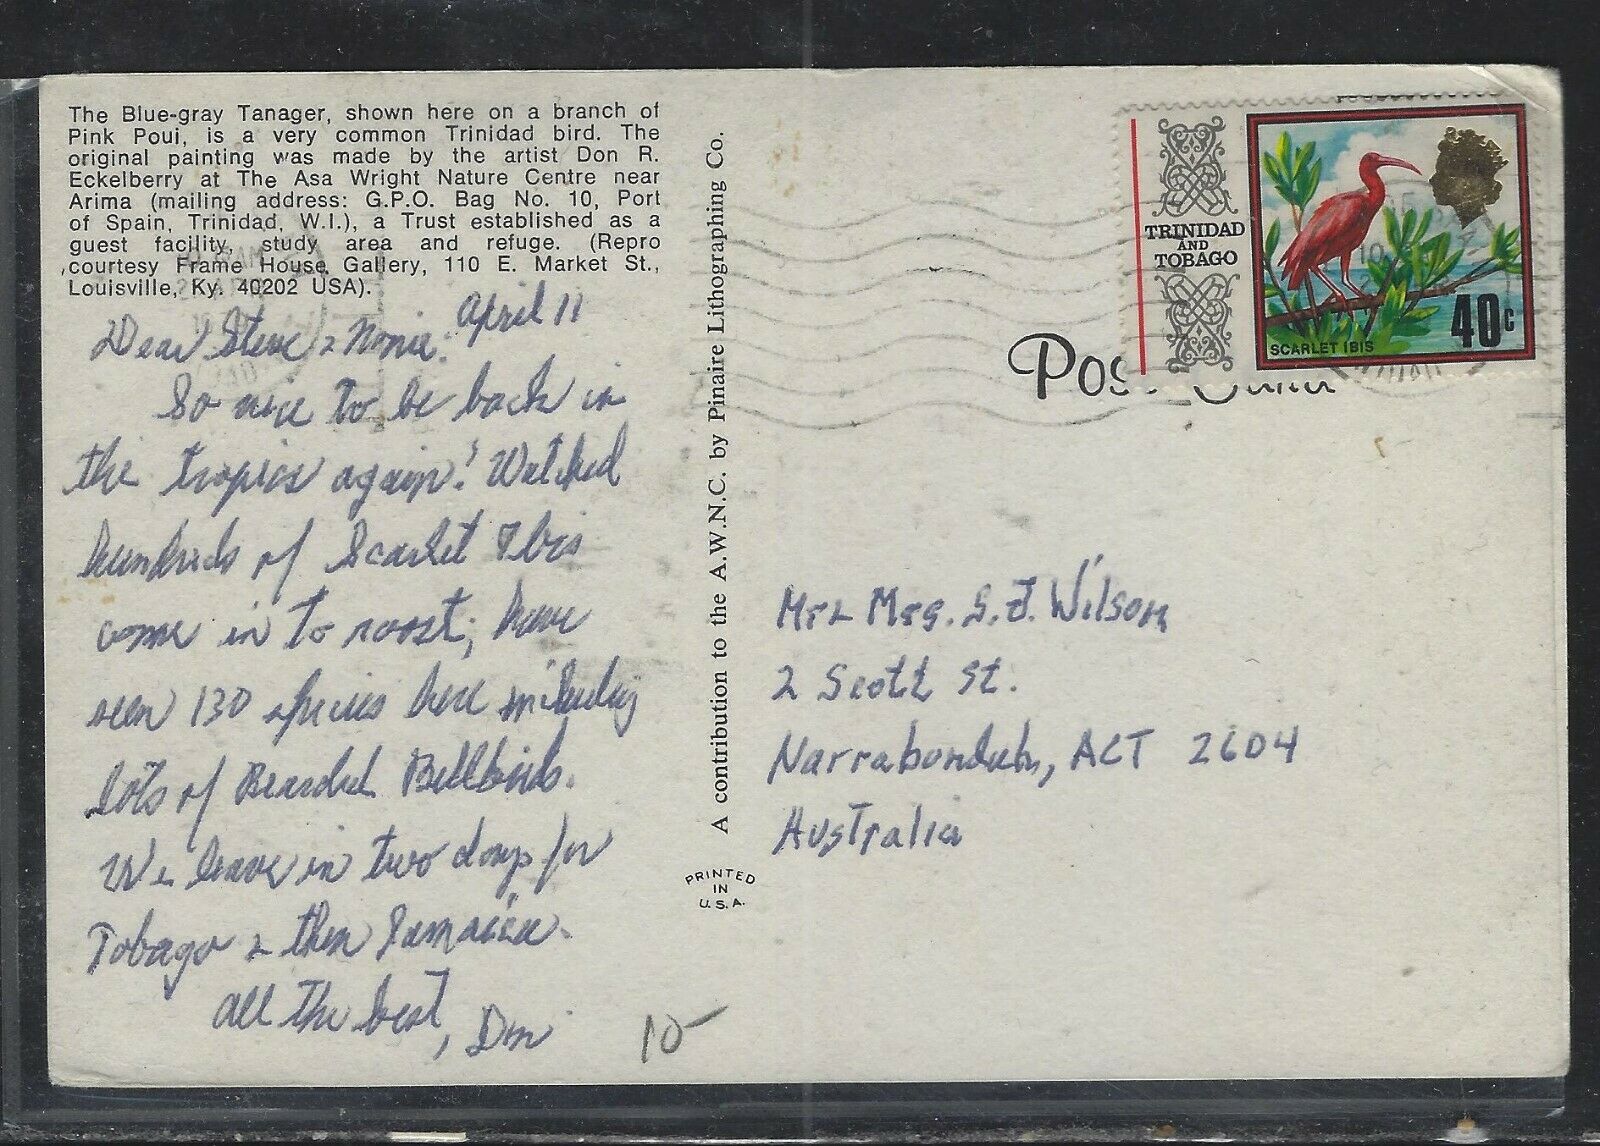 The Blue-gray Tanager, shown here on a branch of
Pink Poui, is a very common Trinidad bird. The
original painting was made by the artist Don R.
Eckelberry at The Asa Wright Nature Centre near
Arima (mailing address: G.P.O. Bag No. 10, Port
of Spain, Trinidad, W.I.), a Trust established as a
guest facility, study area and refuge. (Repro
courtesy Frame House Gallery, 110 E. Market St.,
Louisville, Ky. 40202 USA).
April 11
Dear Steve &
So nice to be back in
the tropics again! Watched
hundreds of Scarlet Ibis
come in to roost; have
seen 130 species here including
lots of Bearded Bellbirds.
We leave in two days for
Tobago & then Jamaica.
all the best,
10-
A contribution to the A.W.N.C. by Pinaire Lithographing Co.
PRINTED
IN
U.S.A.
TRINIDAD
AND
TOBAGO
SCARLET IBIS
40c
Mr & Mrs. S. J. Wilson
2 Scott St.
Narrabondah, ACT 2604
Australia